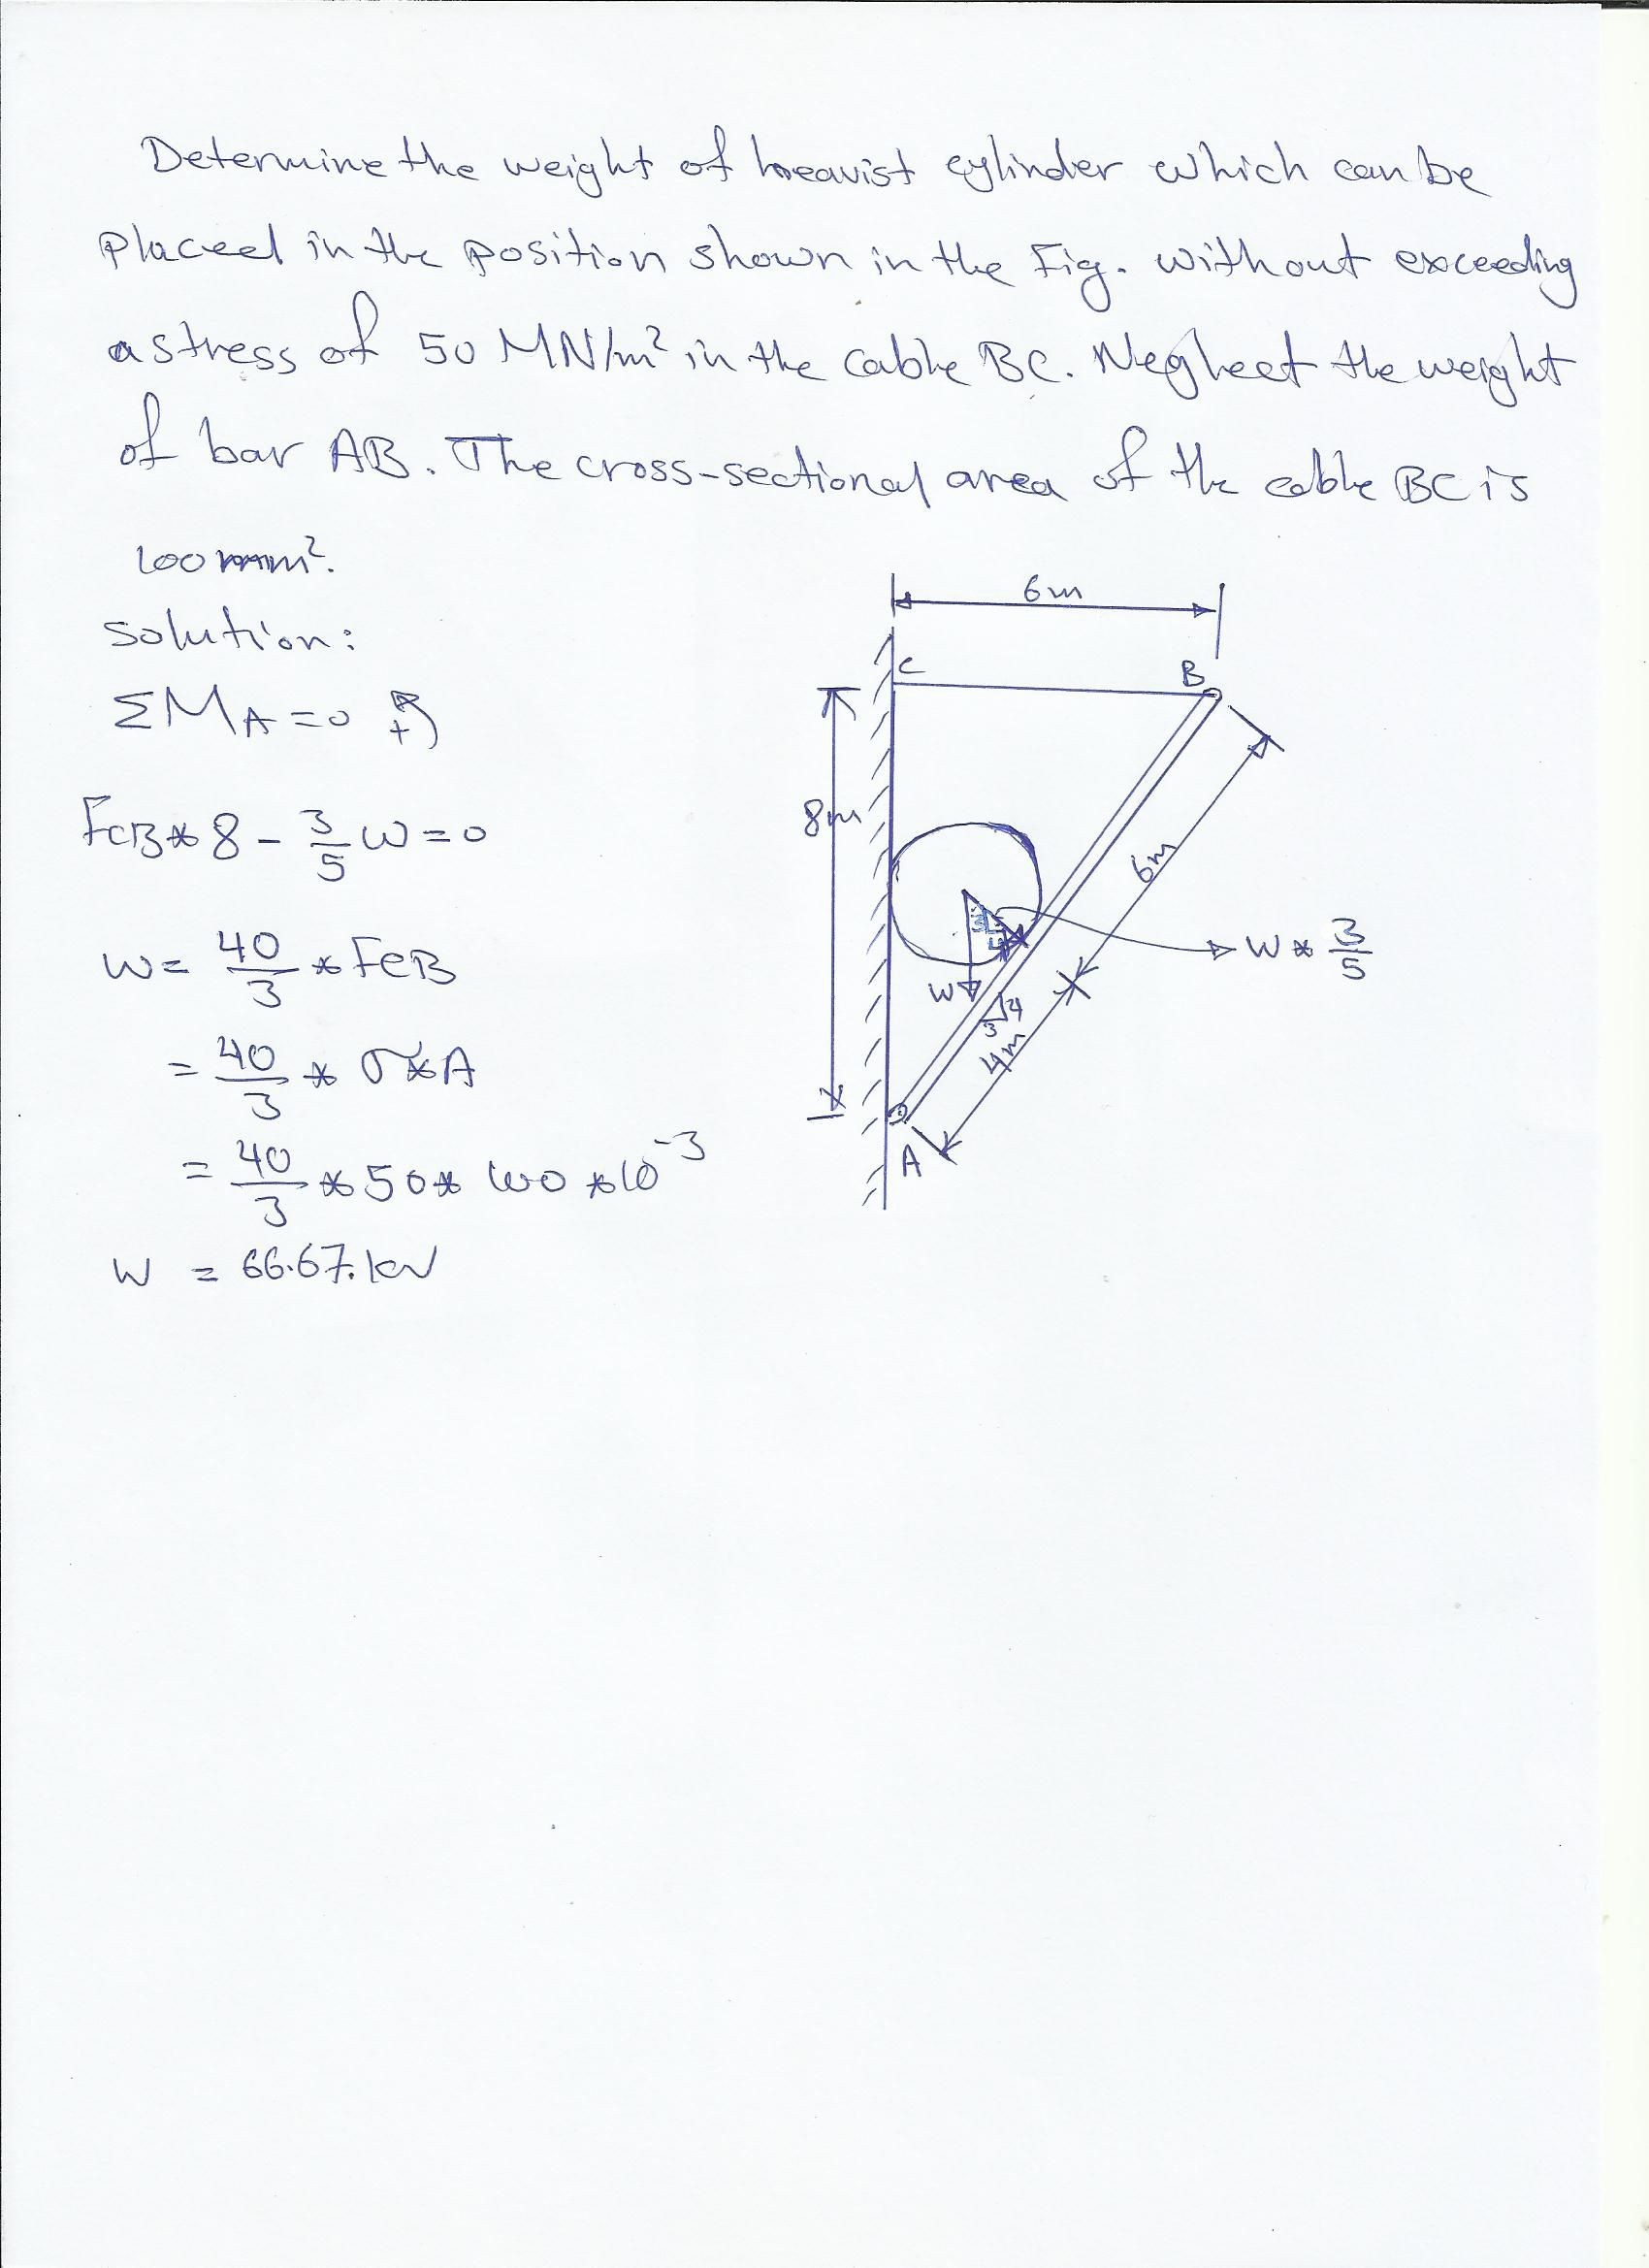 Determine the weight of heavist cylinder which can be
placed in the position shown in the Fig. without exceeding
a stress of 50 MN/m² in the cable BC. Neglect the weight
of bar AB. The cross-sectional area of the cable BC is
100 mm².
Solution:
ΣMA=0 +
FCB*8 - 3/5 W=0
W= 40/3 * FCB
= 40/3 * σ*A
= 40/3 *50* 100 *10⁻³
W = 66.67.kN
6m
C
B
8m
6m
3
4
W
W * 3/5
3
4
4m
A